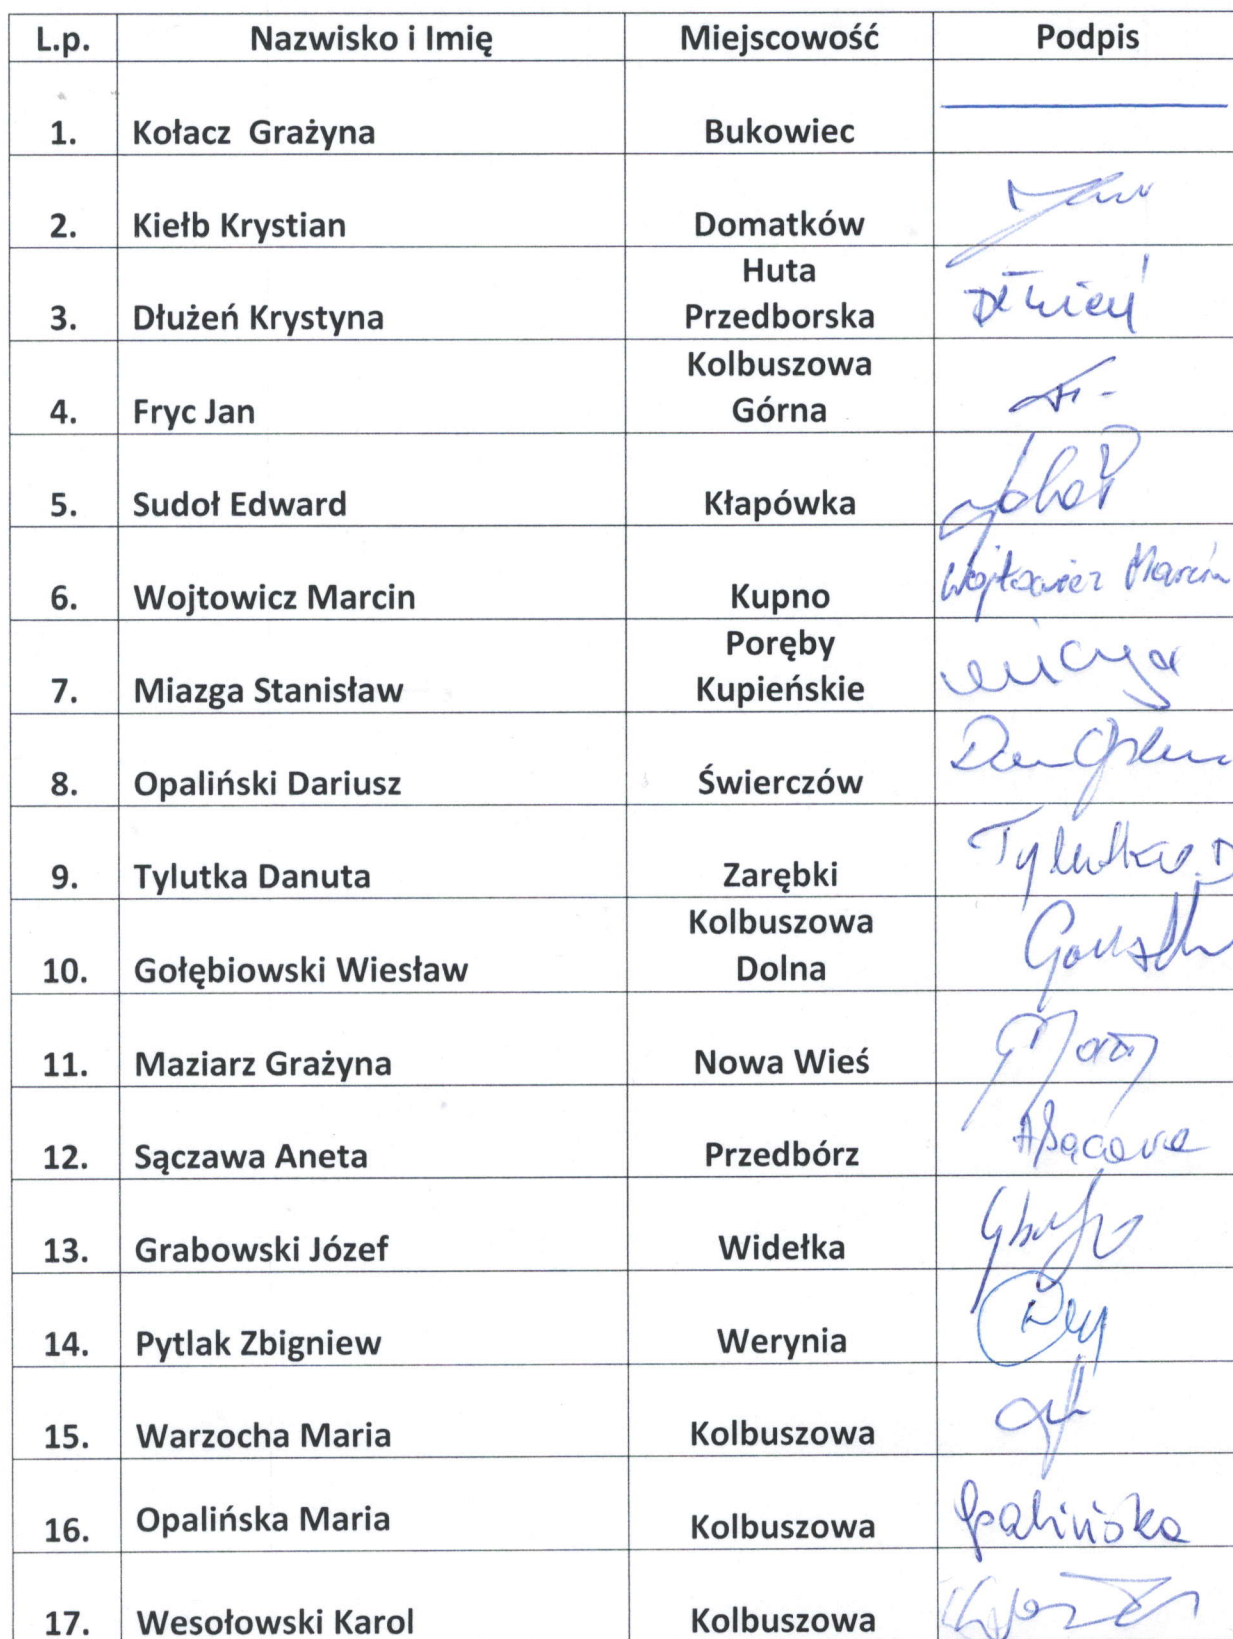 L.p. Nazwisko i Imię Miejscowość Podpis
1. Kołacz Grażyna Bukowiec
2. Kiełb Krystian Domatków
Huta
3. Dłużeń Krystyna Przedborska Dłużeń
Kolbuszowa
4. Fryc Jan Górna
5. Sudoł Edward Kłapówka
6. Wojtowicz Marcin Kupno Wojtowicz Marcin
Poręby
7. Miazga Stanisław Kupieńskie
8. Opaliński Dariusz Świerczów
9. Tylutka Danuta Zarębki Tylutka D
Kolbuszowa
10. Gołębiowski Wiesław Dolna
11. Maziarz Grażyna Nowa Wieś
12. Sączawa Aneta Przedbórz
13. Grabowski Józef Widełka
14. Pytlak Zbigniew Werynia
15. Warzocha Maria Kolbuszowa
16. Opalińska Maria Kolbuszowa Opalińska
17. Wesołowski Karol Kolbuszowa